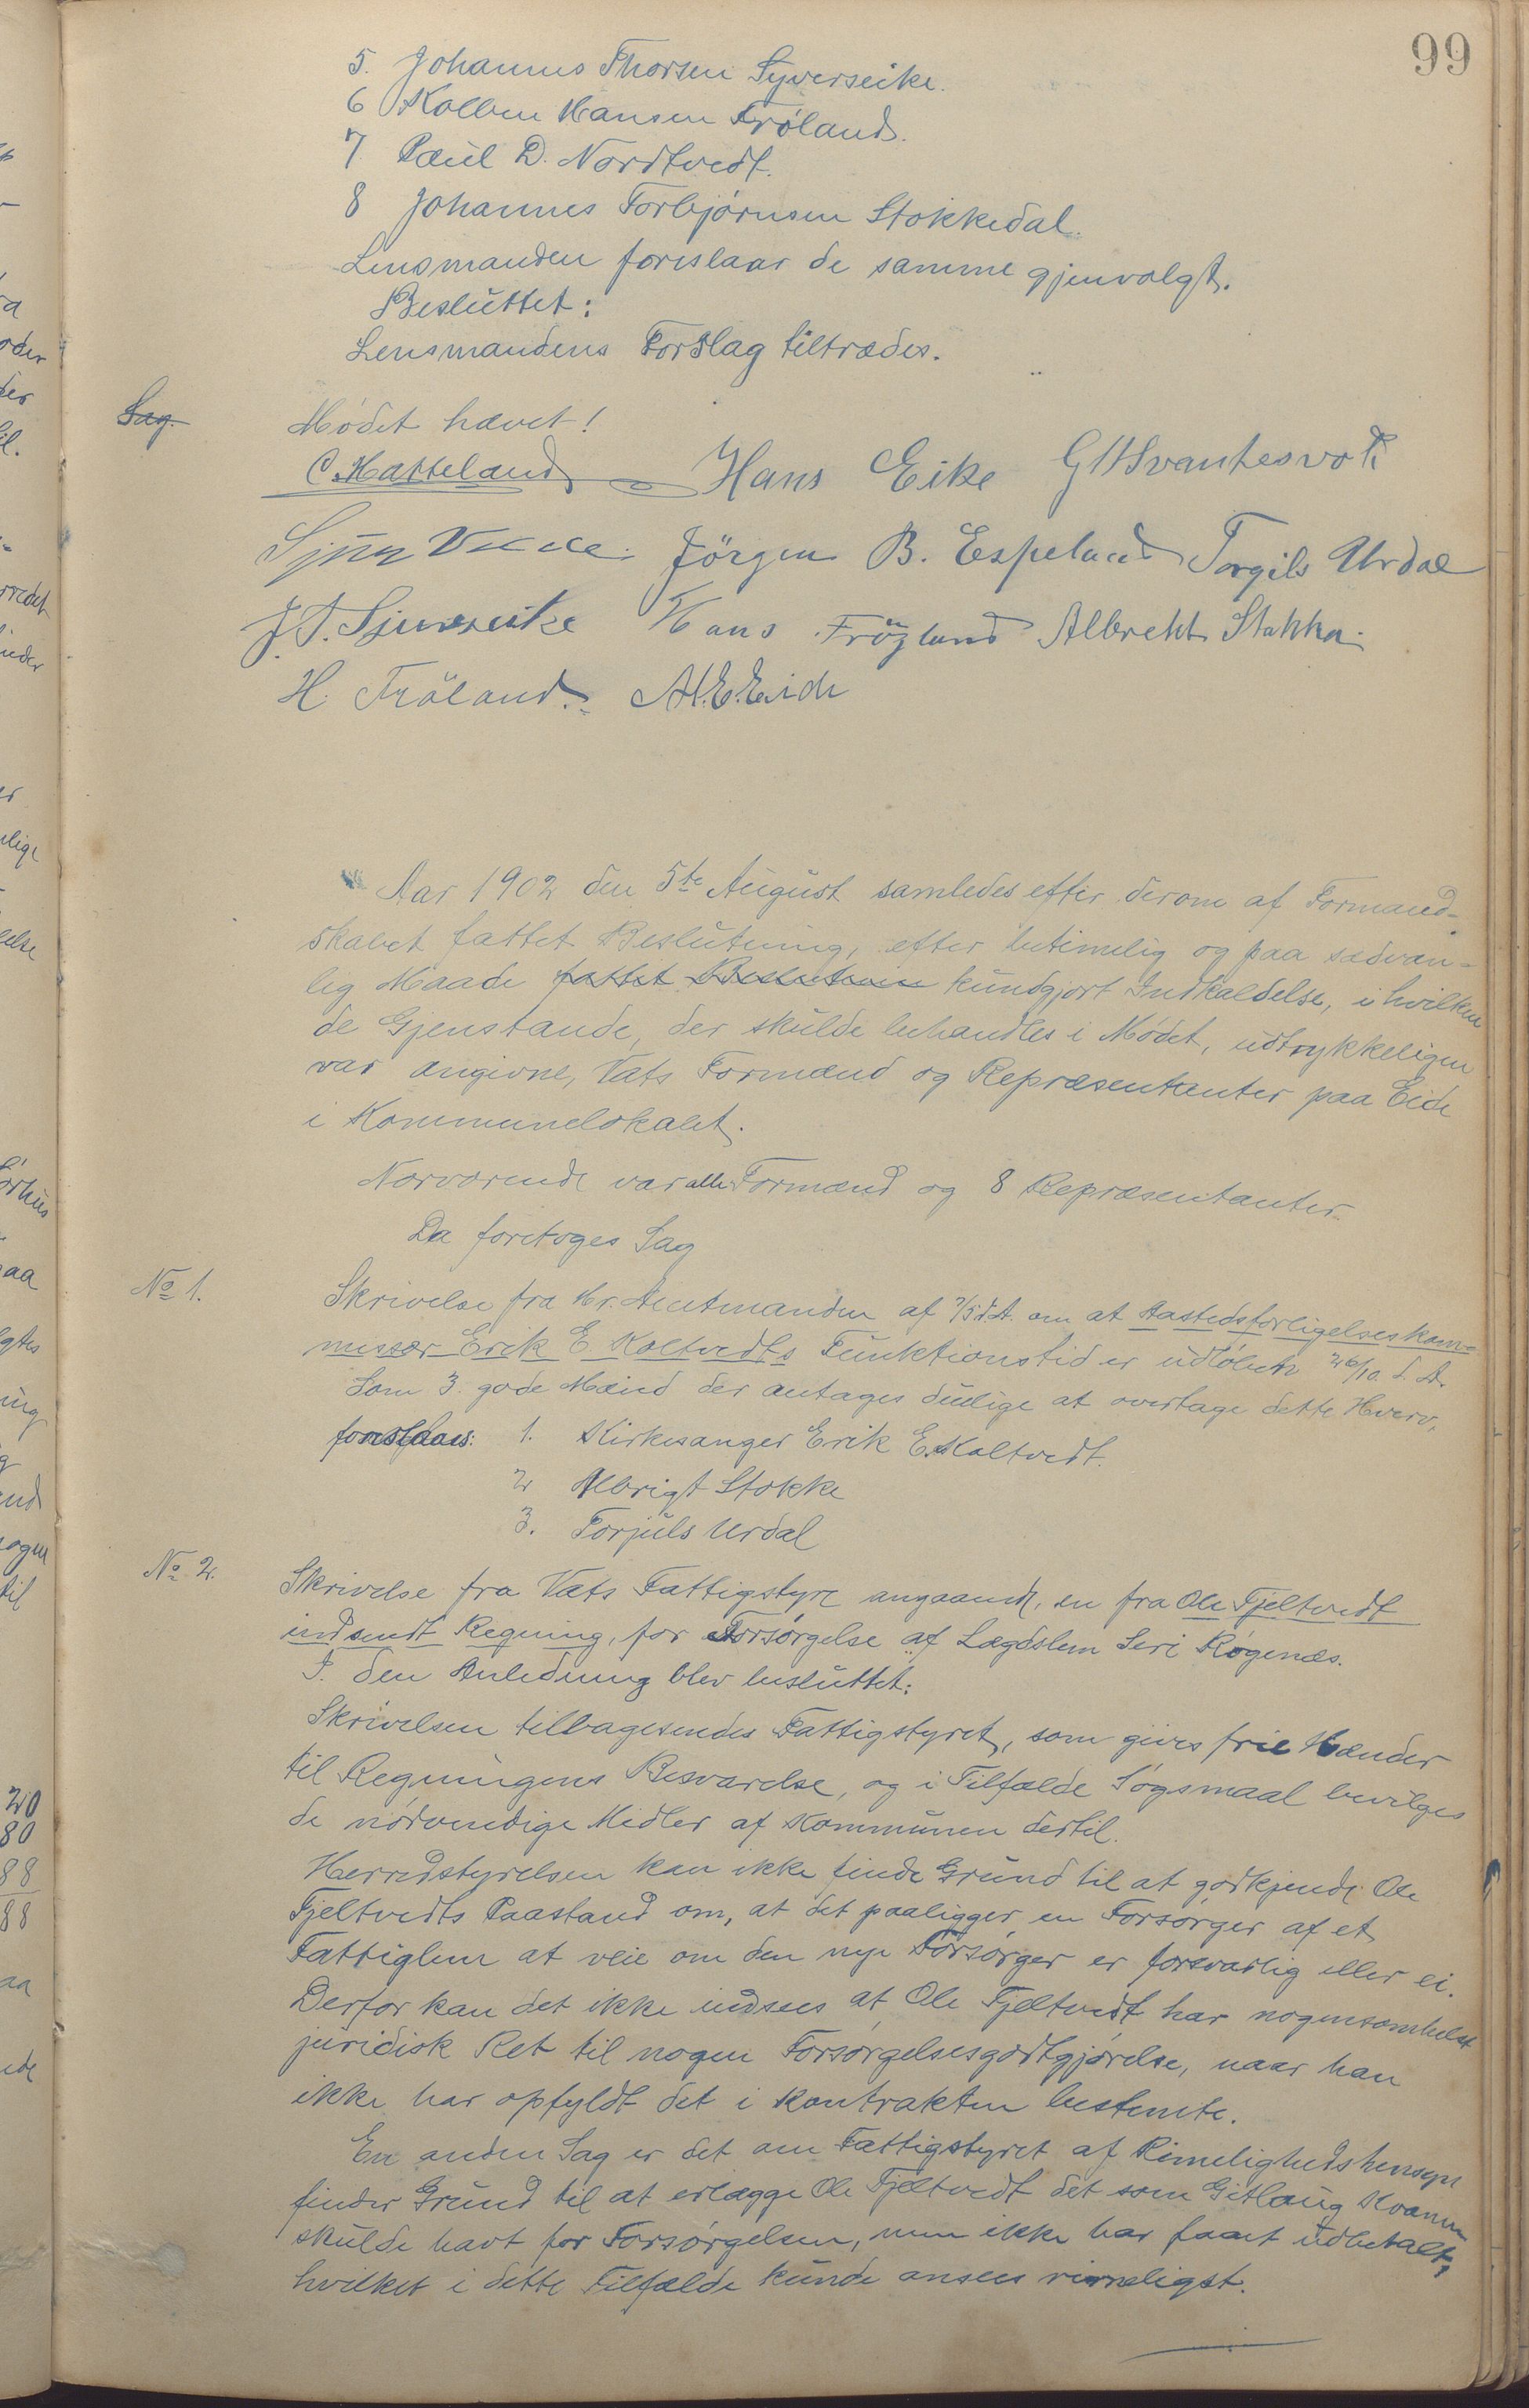 99
5. Johannes Thorsen Syverseike.
6 Kolben Hansen Frøland.
7 Paul D. Nordtvedt.
8 Johannes Torbjørnsen Stokkedal.
Lensmanden foreslaar de samme gjenvalgt.
Besluttet:
Lensmandens Forslag tiltrædes.
Sag.
Mødet hævet!
C. Hatteland Hans Eike G H Svantesvold
Jörgen B. Espeland Torgils Urdal
J. T. Sjurseike Hans Fröyland Albrekt Stakka.
H. Fröland. A. E. Eide
Aar 1902 den 5te August samledes efter derom af Formand-
skabet fattet Beslutning, efter betimelig og paa sædvan-
lig Maade fattet Beslutning kundgjort Indkaldelse, i hvilken
de Gjenstande, der skulde behandles i Mødet, udtrykkeligen
var angivne, Vats Formænd og Repræsentanter paa Eide
i Kommunelokalet.
Nærværende var alle Formænd og 8 Repræsentanter.
Da foretoges Sag
No 1.
Skrivelse fra Hr. Amtmanden af 7/5 d. A. om at Aastedsforligelseskom-
missær Erik E. Koltvedts Funktionstid er udløben 26/10 d. A.
Som 3 gode Mænd der antages duelige at overtage dette Hverv,
foreslaaes: 1. Kirkesanger Erik E. Koltvedt.
2 Albrigt Stokke
3. Torjuls Urdal
No 2.
Skrivelse fra Vats Fattigstyre angaaende, en fra Ole Fjeltvedt
indsendt Regning, for Forsørgelse af Lægdslem Seri Røgenæs.
I den Anledning blev besluttet:
Skrivelsen tilbagesendes Fattigstyret, som gives frie Hænder
til Regningens Besvarelse, og i Tilfælde Søgsmaal bevilges
de nødvendige Midler af Kommunen dertil.
Herredstyrelsen kan ikke finde Grund til at godkjende Ole
Fjeltvedts Paastand om, at det paaligger en Forsørger af et
Fattiglem at veie om den nye Forsørger er forsvarlig eller ei.
Derfor kan det ikke indsees at Ole Fjeltvedt har nogensomhelst
juridisk Ret til nogen Forsørgelsesgodtgjørelse, naar han
ikke har opfyldt det i Kontrakten bestemte.
En anden Sag er det om Fattigstyret af Rimelighedshensyn
finder Grund til at erlægge Ole Fjeltvedt det som Gitlaug Kvamen
skulde havt for Forsørgelsen, men ikke har faaet udbetalt,
hvilket i dette Tilfælde kunde ansees rimeligst.